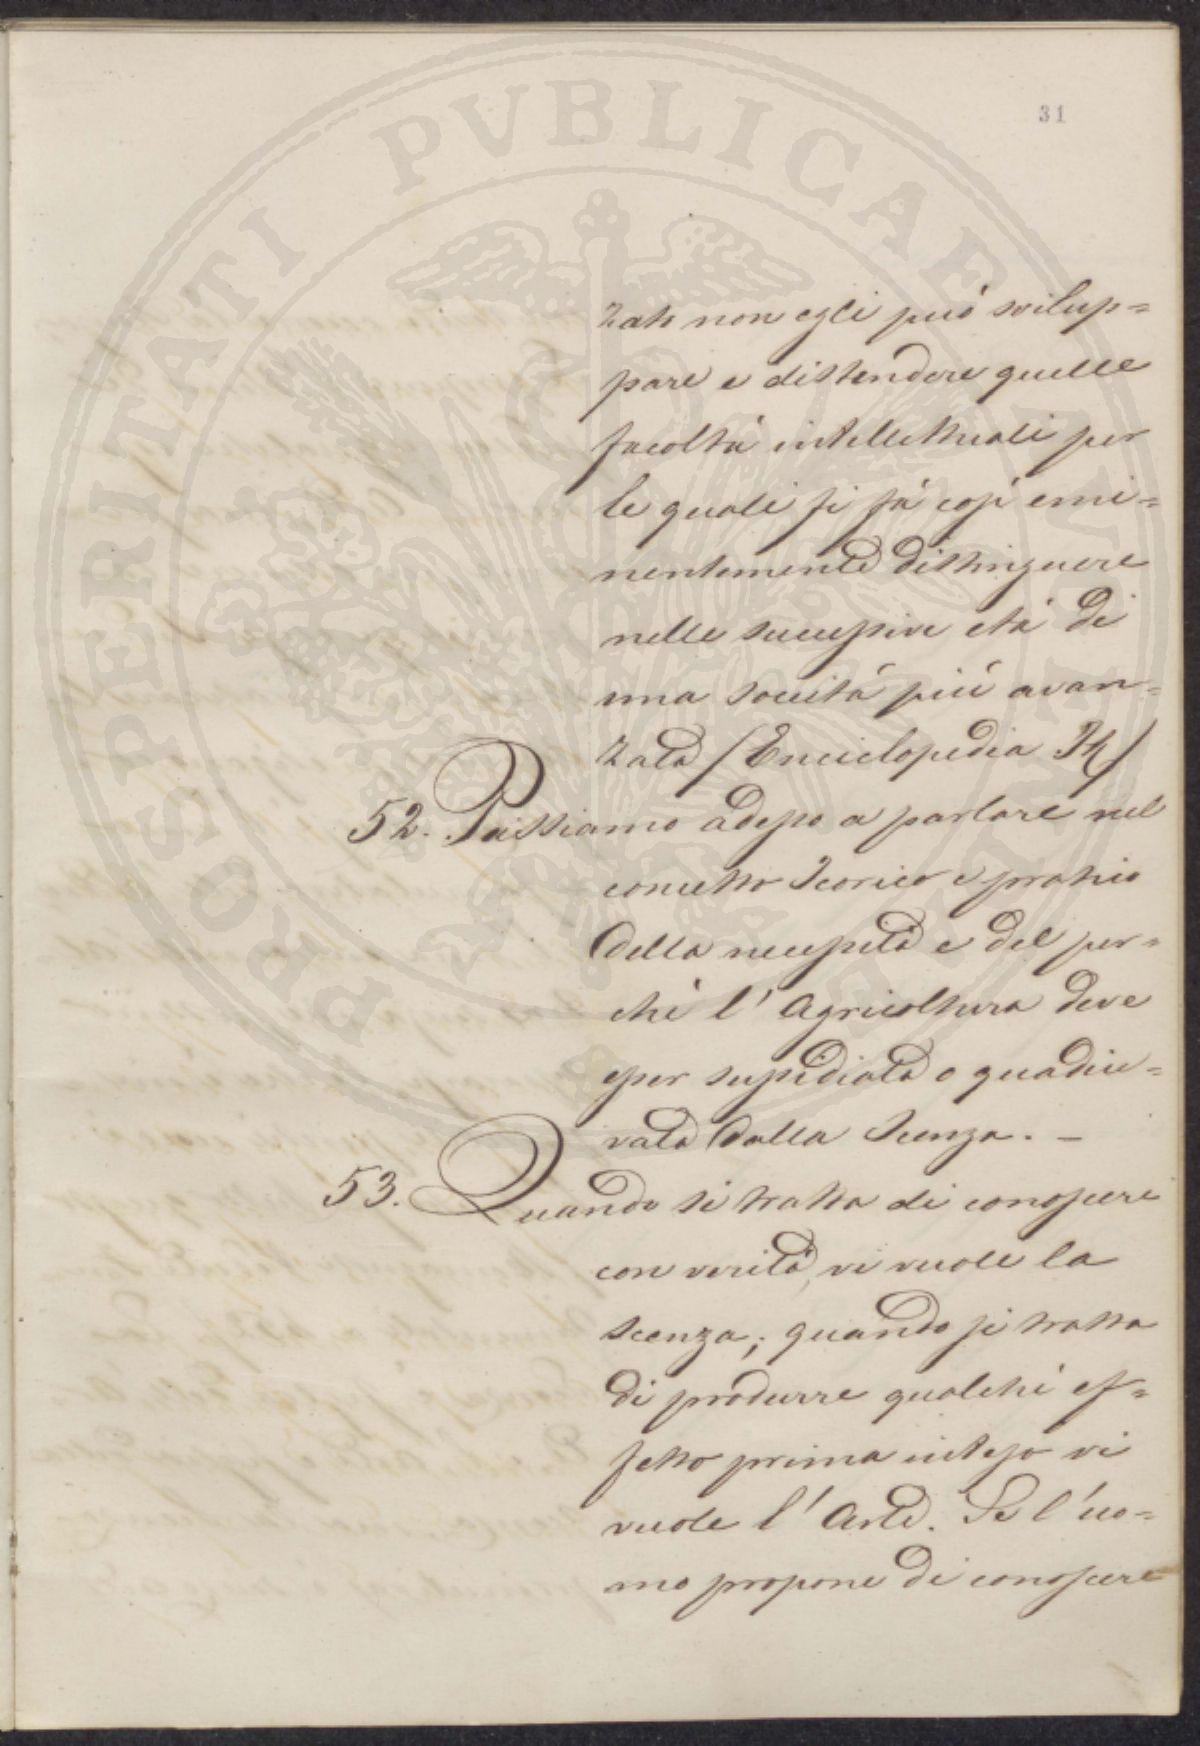 31
zato non egli può svilup=
pare e distendere quelle
facoltà intellettuali per
le quali si fà così emi=
nentemente distinguere
nelle successive età di
una società più avan=
zata (Enciclopedia It)
52. Passiamo adesso a parlare nel
concetto Teorico e pratico
della necessità e del per=
chè l'Agricoltura deve
esser sussidiata o guadiu=
vata dalla Scenza. –
53. Quando si tratta di conoscere
con verità, vi vuole la
scenza; quando si tratta
di produrre qualchè ef=
fetto prima inteso vi
vuole l'Arte. Se l'uo=
mo propone di conoscere
PROSPERITATI PVBLICAE